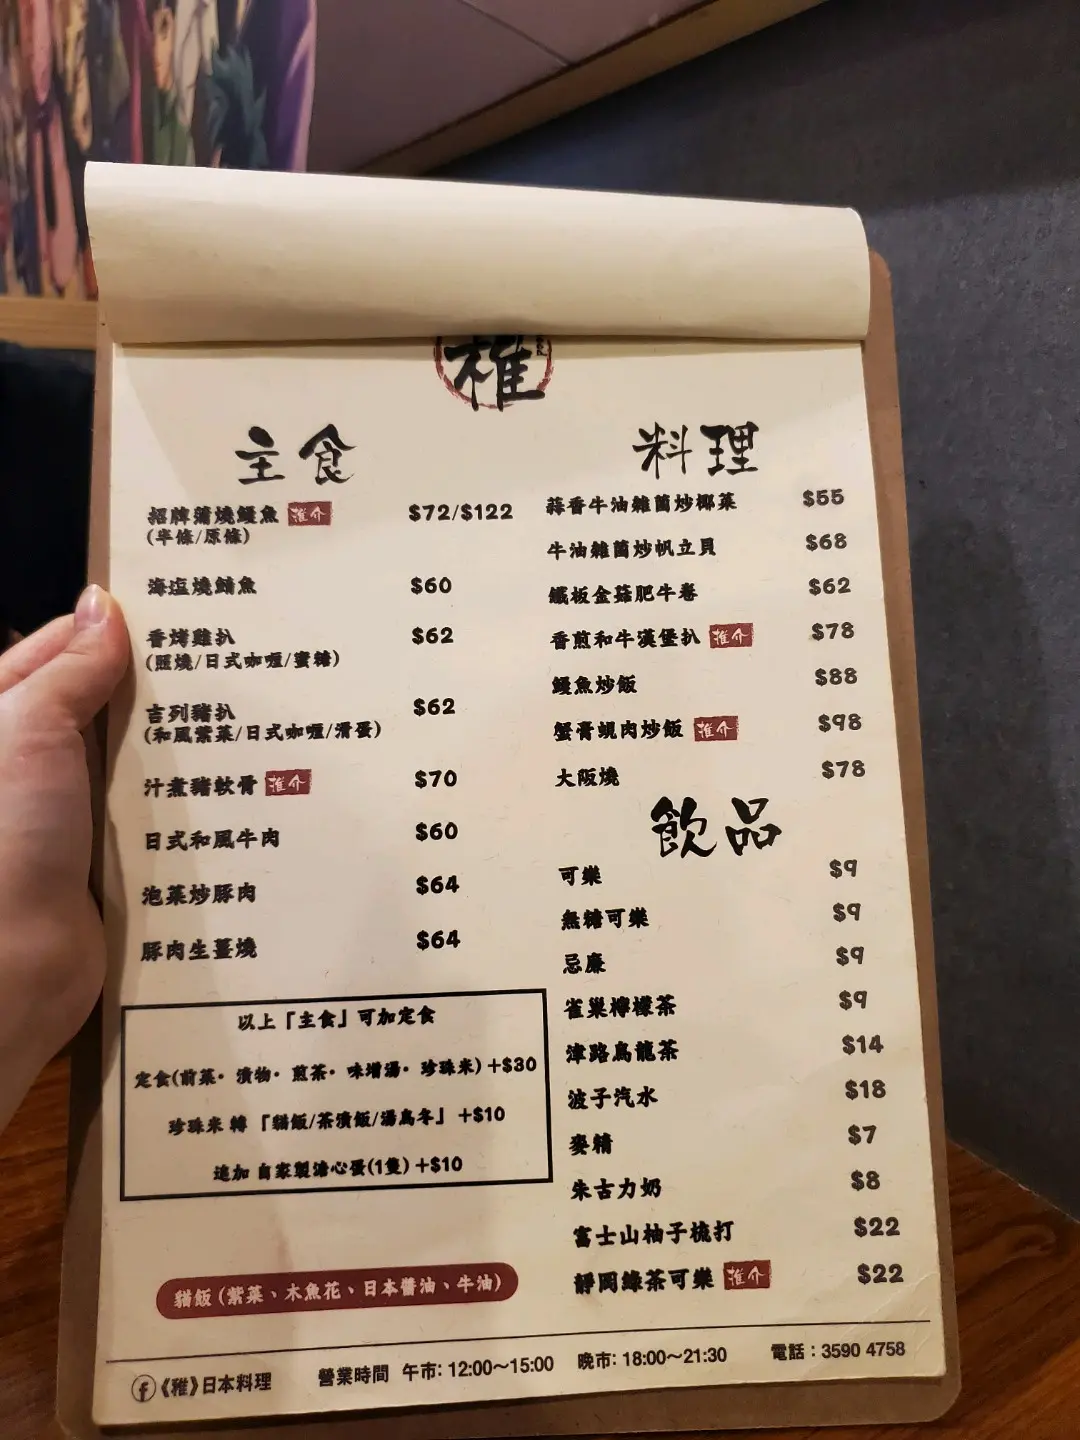 稚
主食
招牌蒲燒鰻魚 推介 $72/$122
(半條/原條)
海塩燒鯖魚 $60
香烤雞扒 $62
(照燒/日式咖喱/蜜糖)
吉列豬扒 $62
(和風紫菜/日式咖喱/滑蛋)
汁煮豬軟骨 推介 $70
日式和風牛肉 $60
泡菜炒豚肉 $64
豚肉生薑燒 $64
以上「主食」可加定食
定食(前菜・漬物・煎茶・味增湯・珍珠米)+$30
珍珠米 轉 「貓飯/茶漬飯/湯烏冬」 +$10
追加 自家製溏心蛋(1隻) +$10
貓飯 (紫菜、木魚花、日本醬油、牛油)
料理
蒜香牛油雜菌炒椰菜 $55
牛油雜菌炒帆立貝 $68
鐵板金菇肥牛卷 $62
香煎和牛漢堡扒 推介 $78
鰻魚炒飯 $88
蟹膏蜆肉炒飯 推介 $98
大阪燒 $78
飲品
可樂 $9
無糖可樂 $9
忌廉 $9
雀巢檸檬茶 $9
津路烏龍茶 $14
波子汽水 $18
麥精 $7
朱古力奶 $8
富士山柚子梳打 $22
靜岡綠茶可樂 推介 $22
《稚》日本料理 營業時間 午市: 12:00～15:00 晚市: 18:00～21:30 電話：3590 4758